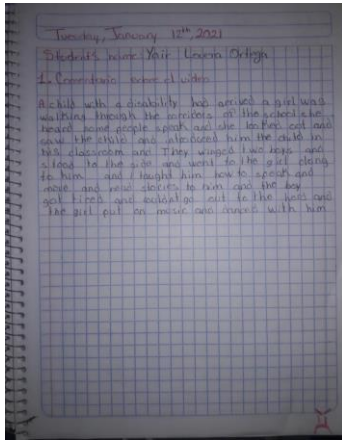 Tuesday, January 12th, 2021
Student's name: Yair Ortega
1. Comentario sobre el video
A child with a disability has arrived a girl was
walking through the corridors of the school she
heard some people speak and she looked out and
saw the child and introduced him the child in
his classroom and They winged two boys and
stood to the side and went to the girl clong
to him and I tought him how to speak and
move and read stories to him and the boy
got tired and couldn't go out to the and
the girl put on music and moved with him